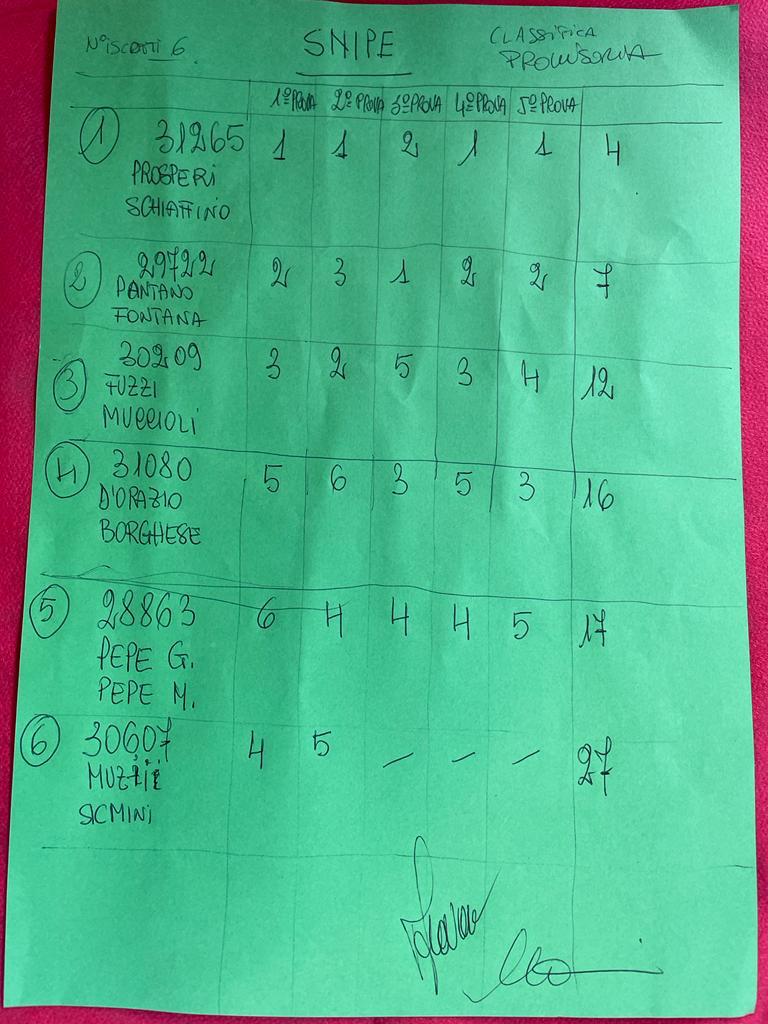 N° iscritti 6
SNIPE
CLASSIFICA
PROVVISORIA
1º PROVA 2º PROVA 3º PROVA 4º PROVA 5º PROVA
1 31265 1 1 2 1 1 4
PROSPERI
SCHIAFFINO
2 29722 2 3 1 2 2 7
PANTANO
FONTANA
3 30209 3 2 5 3 4 12
FUZZI
MUCCIOLI
4 31080 5 6 3 5 3 16
D'ORAZIO
BORGHESE
5 28863 6 4 4 4 5 17
PEPE G.
PEPE M.
6 30607 4 5 – – – 27
SICMINI